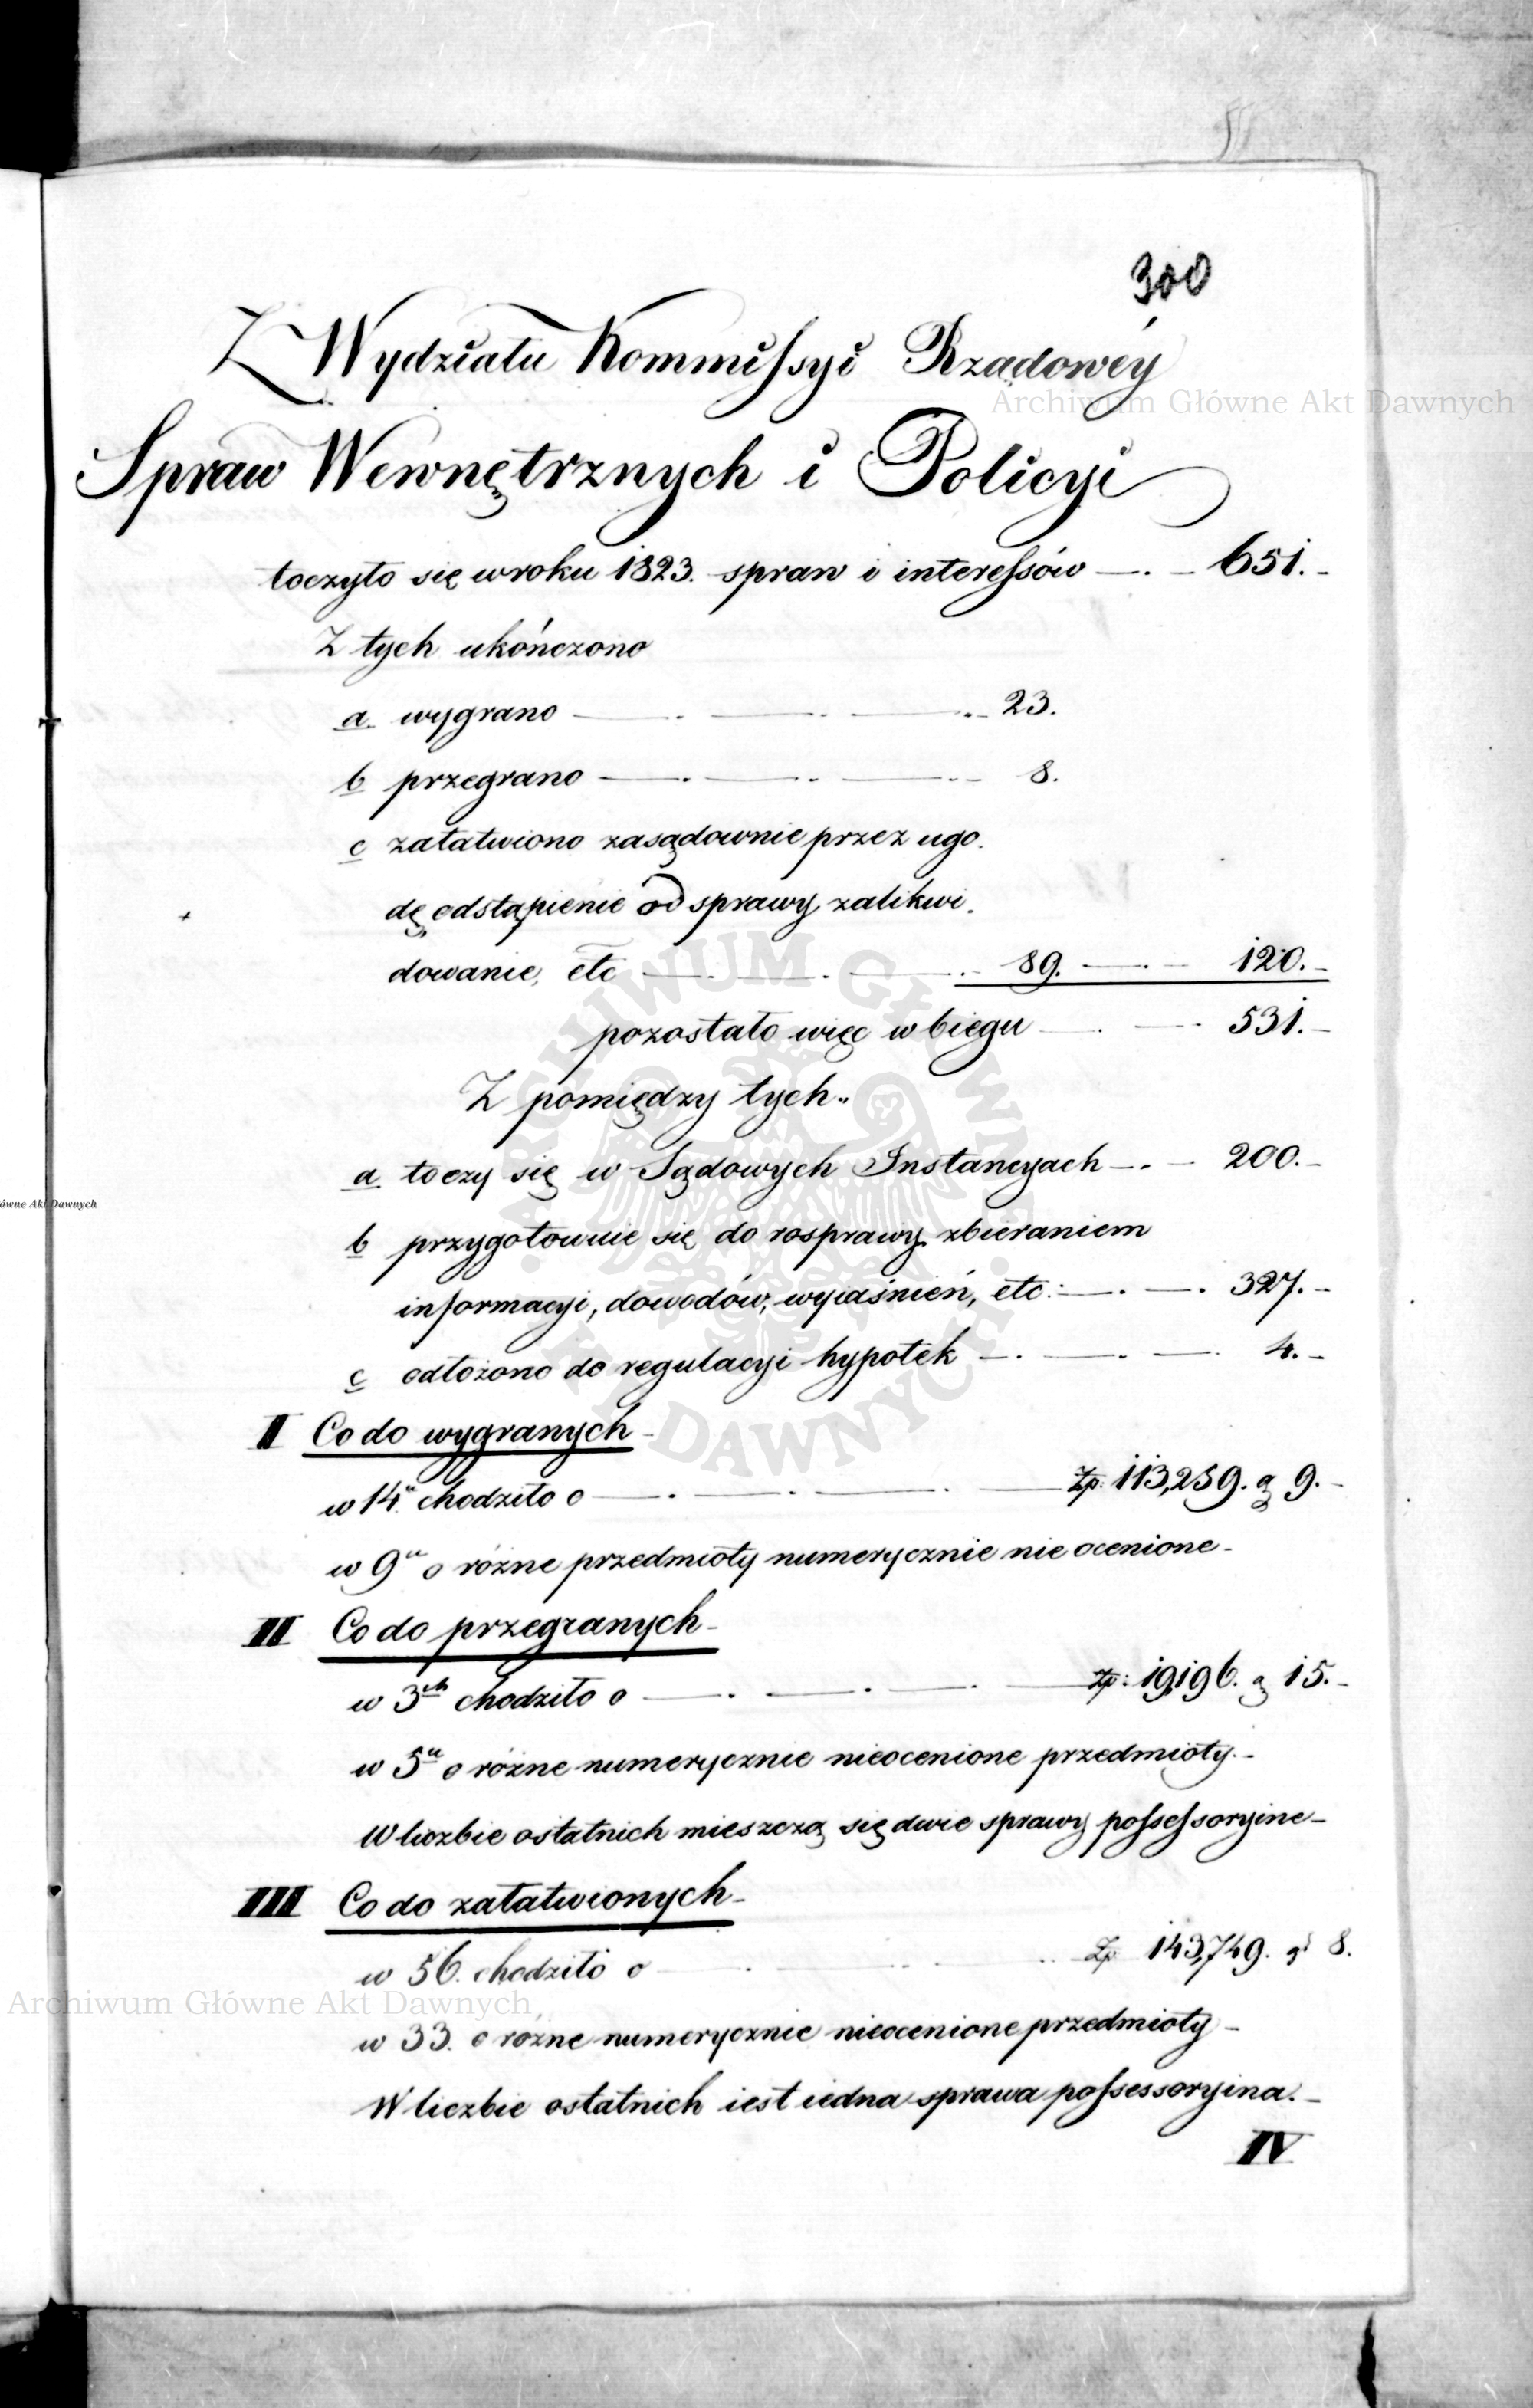 300
Z Wydziału Kommissyi Rządowéy
Spraw Wewnętrznych i Policyi
toczyło się w roku 1823. spraw i interessów —.— 651.—
Z tych ukończono
a. wygrano —. —. —.— 23.
b przegrano —. —. —.— 8.
c załatwiono zasądownie przez ugo.
dę odstąpienie od sprawy zalikwi.
dowanie, etc —. —. —.— 89. —.— 120.—
pozostało więc w biegu —. —. 531.—
Z pomiędzy tych..
a toczy się w Sądowych Instancyach —.— 200.—
b przygotowuie się do rosprawy zbieraniem
informacyi, dowodów, wyiaśnień, etc: —. —. 327.—
c odłożono do regulacyi hypotek —. —. —. 4.—
I Co do wygranych —
w 14.u chodziło o —. —. —. — Zp: 113,259. g 9.—
w 9u o różne przedmioty numerycznie nie ocenione —
II Co do przegranych —
w 3ch chodziło o —. —. —. — Zp: 19,196. g 15.—
w 5u o różne numerycznie nieocenione przedmioty.—
W liczbie ostatnich mieszczą się dwie sprawy possessoryine —
III Co do załatwionych —
w 56. chodziło o —. —. —. Zp 143,749. gr 8.
w 33. o różne numerycznie nieocenione przedmioty —
W liczbie ostatnich iest iedna sprawa possessoryina.—
IV
Archiwum Główne Akt Dawnych
ówne Akt Dawnych
ARCHIWUM GŁÓWNE AKT DAWNYCH
Archiwum Główne Akt Dawnych